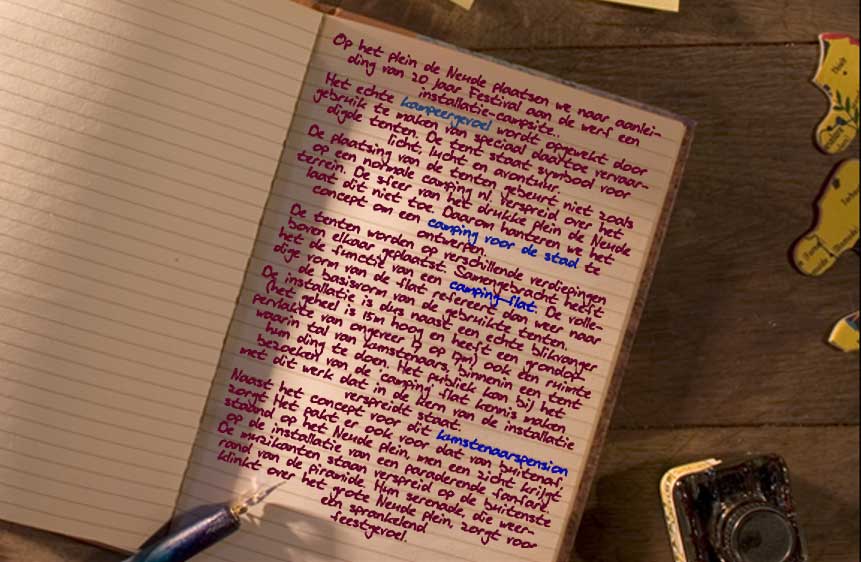 Op het plein de Neude plaatsen we naar aanlei-
ding van 20 Jaar Festival aan de werf een
installatie-campsite.
Het echte kampeergevoel wordt opgewekt door
gebruik te maken van speciaal daartoe vervaar-
digde tenten. De tent staat symbool voor
licht, lucht en avontuur.
De plaatsing van de tenten gebeurt niet zoals
op een normale camping nl. verspreid over het
terrein. De sfeer van het drukke plein de Neude
laat dit niet toe. Daarom hanteren we het
concept om een camping voor de stad te
ontwerpen.
De tenten worden op verschillende verdiepingen
boven elkaar geplaatst. Samengebracht heeft
het de functie van een camping-flat. De volle-
dige vorm van de flat refereert dan weer naar
de basisvorm van de gebruikte tenten.
De installatie is dus naast een echte blikvanger
(het geheel is 15m hoog en heeft een grondop
pervlakte van ongeveer 17 op 17m) ook een ruimte
waarin tal van kunstenaars, binnenin een tent
hun ding te doen. Het publiek kan bij het
bezoeken van de camping flat kennis maken
met dit werk dat in de kern van de installatie
verspreidt staat.
Naast het concept voor dit kunstenaarspension
zorgt het pakt er ook voor dat van buitenaf,
staand op het Neude plein, men een zicht krijgt
op de installatie van een paraderende fanfare.
De muzikanten staan verspreid op de buitenste
rand van de piramide. Hun serenade, die weer-
klinkt over het grote Neude plein, zorgt voor
een sprankelend
feestgevoel.